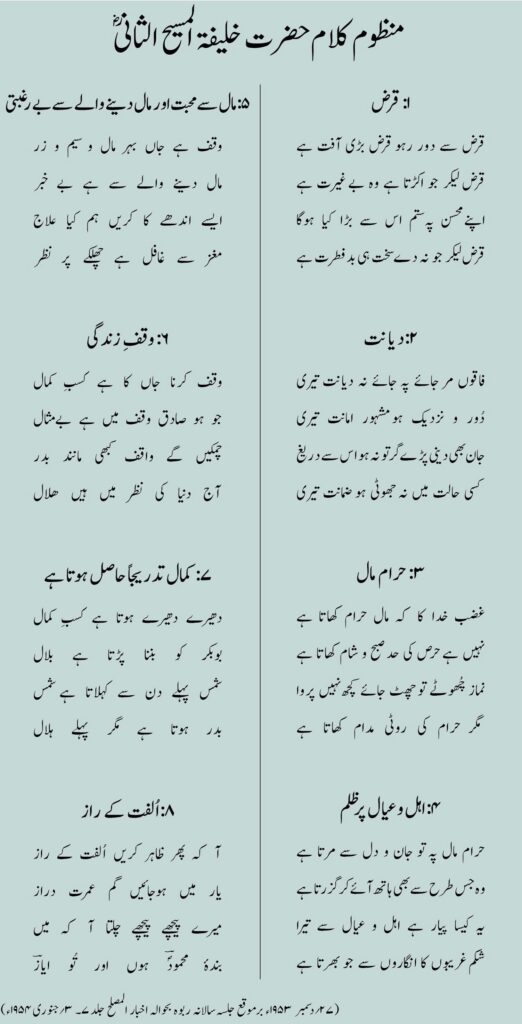 منظوم کلام حضرت خلیفۃ المسیح الثانیؓ
۱: قرض
قرض سے دور رہو قرض بڑی آفت ہے
قرض لیکر جو اکڑتا ہے وہ بے غیرت ہے
اپنے محسن پہ ستم اس سے بڑا کیا ہوگا
قرض لیکر جو نہ دے سخت ہی بد فطرت ہے
۲: دیانت
فاقوں مر جائے پہ جائے نہ دیانت تیری
دُور و نزدیک ہو مشہور امانت تیری
جان بھی دینی پڑے گر تو نہ ہو اس سے دریغ
کسی حالت میں نہ جھوٹی ہو ضمانت تیری
۳: حرام مال
غضب خدا کا کہ مال حرام کھاتا ہے
نہیں ہے حرص کی حد صبح و شام کھاتا ہے
نماز چُھوٹے تو چھٹ جائے کچھ نہیں پروا
مگر حرام کی روٹی مدام کھاتا ہے
۴: اہل و عیال پر ظلم
حرام مال پہ تو جان و دل سے مرتا ہے
وہ جس طرح سے بھی ہاتھ آئے کر گزرتا ہے
یہ کیسا پیار ہے اہل و عیال سے تیرا
شکم غریبوں کا انگاروں سے جو بھرتا ہے
۵: مال سے محبت اور مال دینے والے سے بے رغبتی
وقف ہے جاں بہر مال و سیم و زر
مال دینے والے سے ہے بے خبر
ایسے اندھے کا کریں ہم کیا علاج
مغز سے غافل ہے چھلکے پر نظر
۶: وقفِ زندگی
وقف کرنا جاں کا ہے کسبِ کمال
جو ہو صادق وقف میں ہے بے مثال
چمکیں گے واقف کبھی مانند بدر
آج دنیا کی نظر میں ہیں ھلال
۷: کمال تدریجاً حاصل ہوتا ہے
دھیرے دھیرے ہوتا ہے کسبِ کمال
بوبکر کو بننا پڑتا ہے بلال
شمس پہلے دن سے کہلاتا ہے شمس
بدر ہوتا ہے مگر پہلے ہلال
۸: اُلفت کے راز
آ کہ پھر ظاہر کریں اُلفت کے راز
یار میں ہوجائیں گم عمرت دراز
میرے پیچھے پیچھے چلتا آ کہ میں
بندۂ محمودؔ ہوں اور تُو ایازؔ
(۲۷؍ دسمبر ۱۹۵۳ء بر موقع جلسہ سالانہ ربوہ بحوالہ اخبار المصلح جلد ۷۔ ۳؍ جنوری ۱۹۵۴ء)